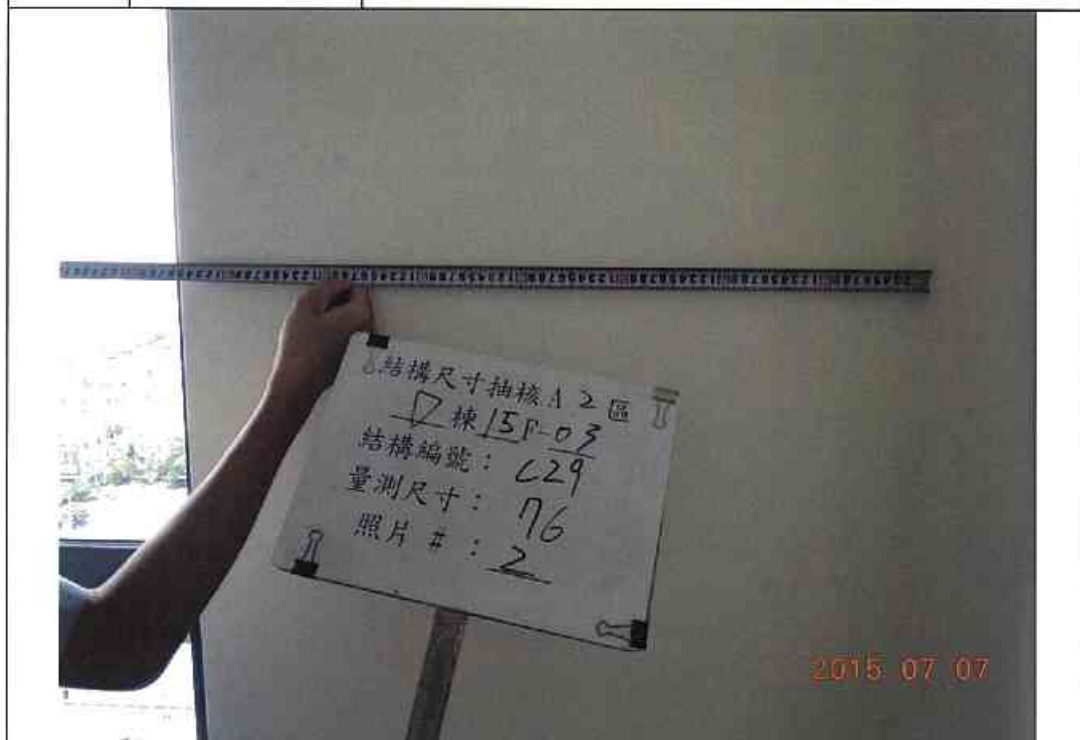 結構尺寸抽核 A 2 區
D 棟 15F-03
結構編號： C29
量測尺寸： 76
照片 #： 2
2015 07 07